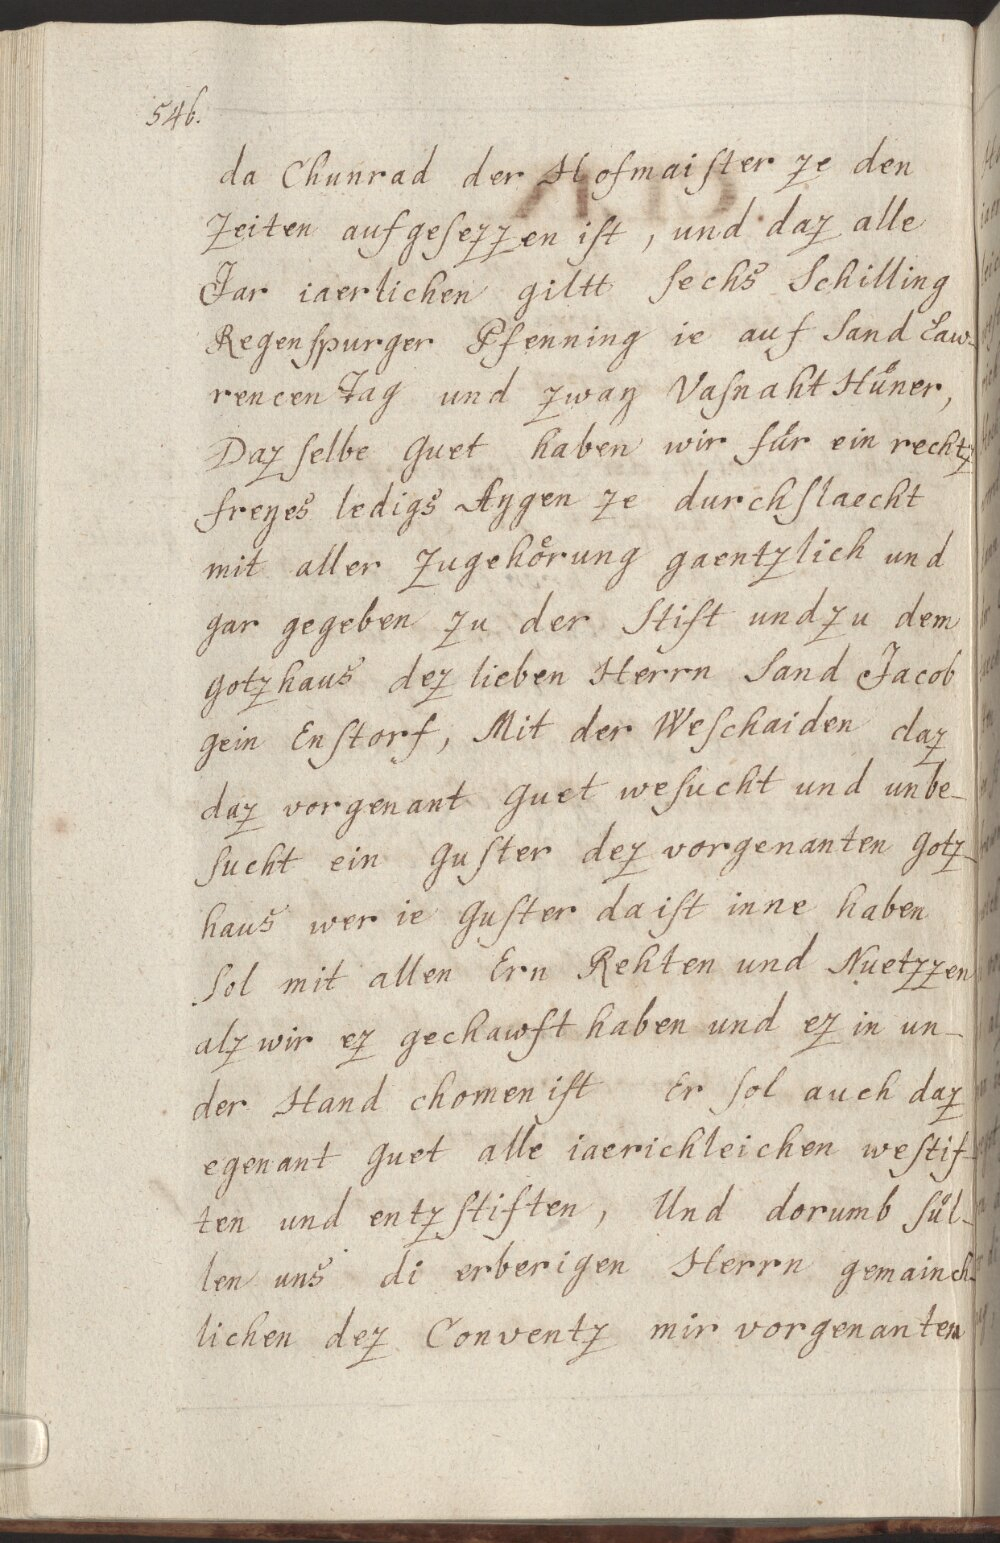 546.
da Chunrad der Hofmaister ze den
Zeiten aufgesezzen ist, und daz alle
Jar iaerlichen giltt sechs Schilling
Regenspurger Pfenning ie auf Sand Law-
rencen Tag und zway Vasnaht Hüner,
Daz selbe Guet haben wir für ein rechtz
freyes ledigs Aygen ze durchslaecht
mit aller Zugehörung gaentzlich und
gar gegeben zu der Stift und zu dem
gotzhaus dez lieben Herrn Sand Jacob
gein Enstorf, Mit der Weschaiden daz
daz vorgenant Guet wesucht und unbe-
sucht ein Guster dez vorgenanten Gotz-
haus wer ie Guster da ist inne haben
Sol mit allen Ern Rehten und Nuetzzen
alz wir ez gechawft haben und ez in un-
der Hand chomen ist Er sol auch daz
egenant Guet alle iaerichleichen westif-
ten und entzstiften, Und dorumb sül-
len uns di erberigen Herrn gemainch-
lichen dez Conventz mir vorgenanten